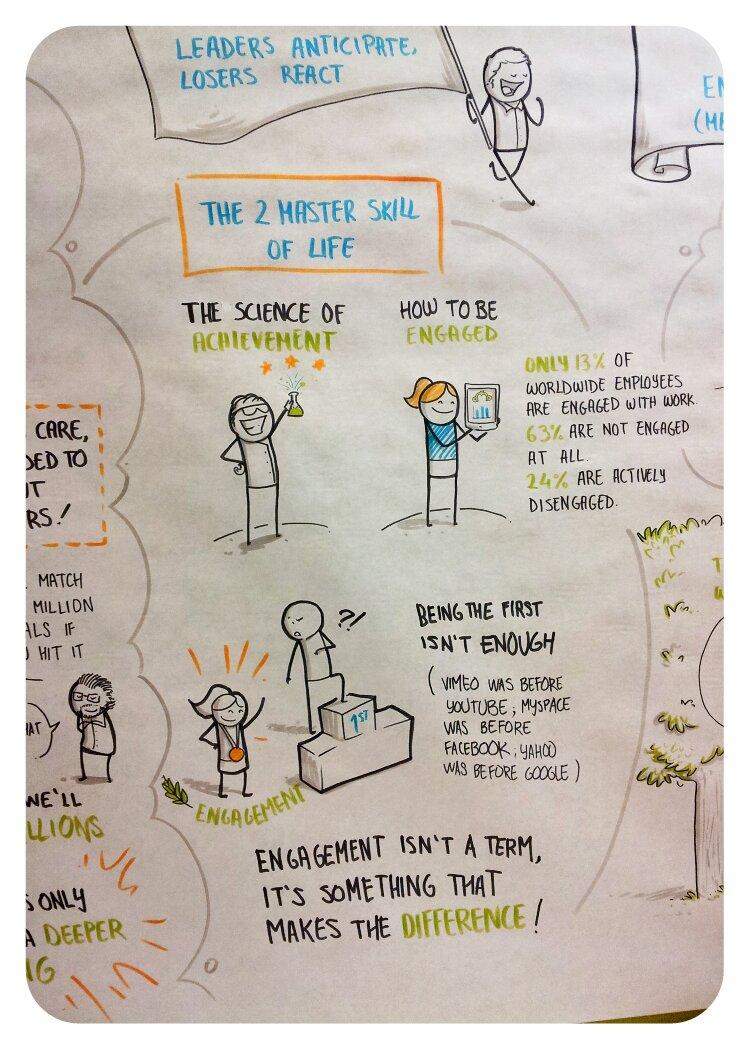 LEADERS ANTICIPATE,
LOSERS REACT
THE 2 MASTER SKILL
OF LIFE
THE SCIENCE OF
ACHIEVEMENT
HOW TO BE
ENGAGED
ONLY 13% OF
WORLDWIDE EMPLOYEES
ARE ENGAGED WITH WORK.
63% ARE NOT ENGAGED
AT ALL.
24% ARE ACTIVELY
DISENGAGED.
CARE,
TO
MATCH
MILLION
IF
HIT IT
WE'LL
ONLY
A DEEPER
?!
1ST
ENGAGEMENT
BEING THE FIRST
ISN'T ENOUGH
(VIMEO WAS BEFORE
YOUTUBE, MYSPACE
WAS BEFORE
FACEBOOK, YAHOO
WAS BEFORE GOOGLE)
ENGAGEMENT ISN'T A TERM,
IT'S SOMETHING THAT
MAKES THE DIFFERENCE!